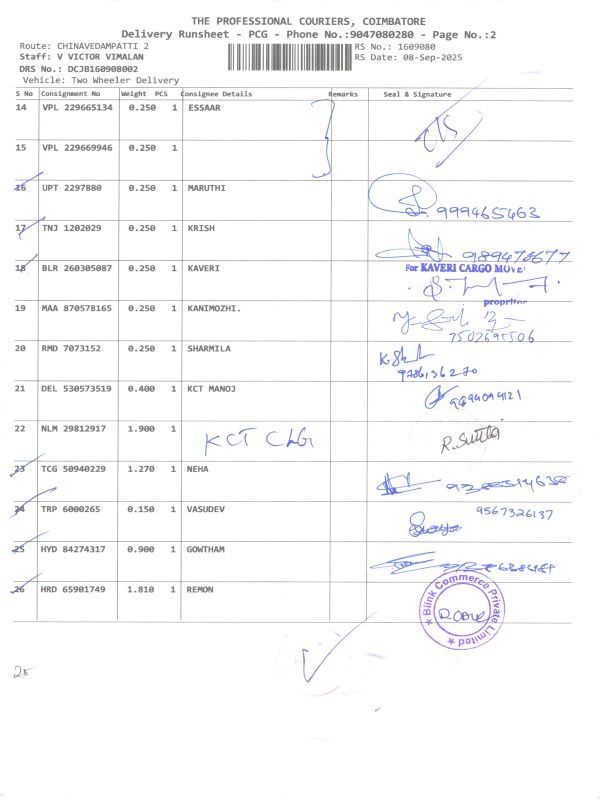 THE PROFESSIONAL COURIERS, COIMBATORE
Delivery Runsheet - PCG - Phone No.:9047080280 - Page No.:2
Route: CHINAVEDAMPATTI 2
RS No.: 1609080
Staff: V VICTOR VIMALAN
RS Date: 08-Sep-2025
DRS No.: DCJB160908002
Vehicle: Two Wheeler Delivery
S No Consignment No Weight PCS Consignee Details Remarks Seal & Signature
14 VPL 229665134 0.250 1 ESSAAR
15 VPL 229669946 0.250 1
16 UPT 2297880 0.250 1 MARUTHI
999465463
17 TNJ 1202029 0.250 1 KRISH
989478677
18 BLR 260305087 0.250 1 KAVERI
For KAVERI CARGO MOVE
propritor
19 MAA 870578165 0.250 1 KANIMOZHI.
7502695506
20 RMD 7073152 0.250 1 SHARMILA
9786136270
21 DEL 530573519 0.400 1 KCT MANOJ
9894094121
22 NLM 29812917 1.900 1
KCT CLG
23 TCG 50940229 1.270 1 NEHA
24 TRP 6000265 0.150 1 VASUDEV
9567326137
25 HYD 84274317 0.900 1 GOWTHAM
26 HRD 65901749 1.810 1 REMON
Blink Commerce Private Limited
28